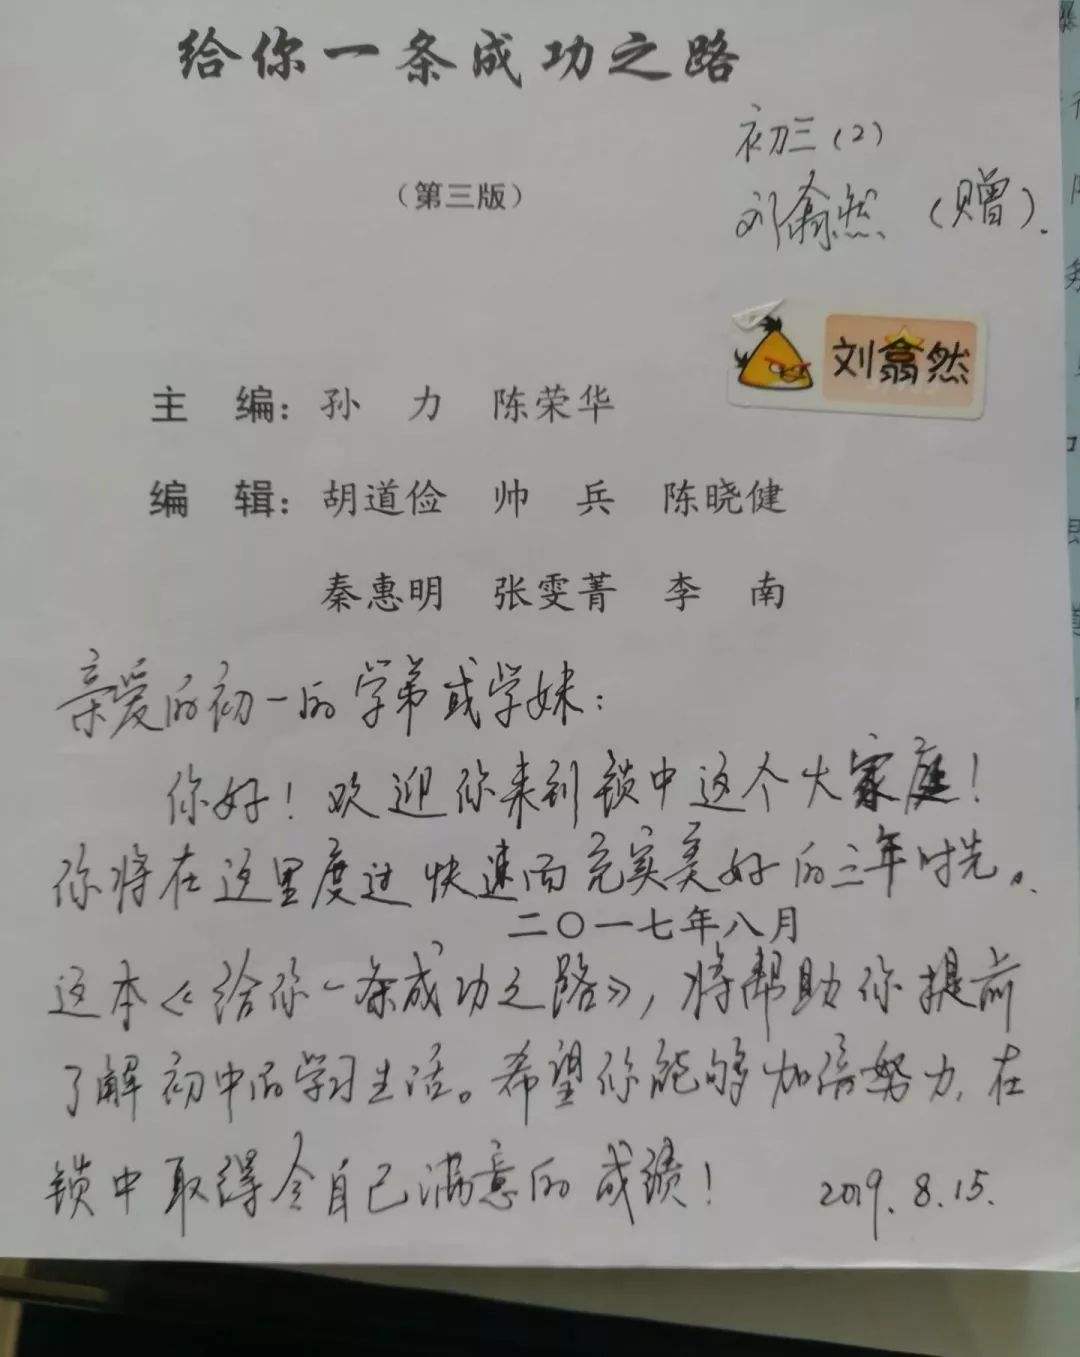 给你一条成功之路
初三(2)
(第三版)
刘翕然 (赠).
刘翕然
主 编: 孙 力 陈荣华
编 辑: 胡道俭 帅 兵 陈晓健
秦惠明 张雯菁 李 南
亲爱的初一的学弟或学妹:
你好! 欢迎你来到锁中这个大家庭!
你将在这里度过快速而充实美好的三年时光。
二〇一七年八月
这本《给你一条成功之路》, 将帮助你提前
了解初中的学习生活。希望你能够加倍努力, 在
锁中取得令自己满意的成绩! 2019.8.15.